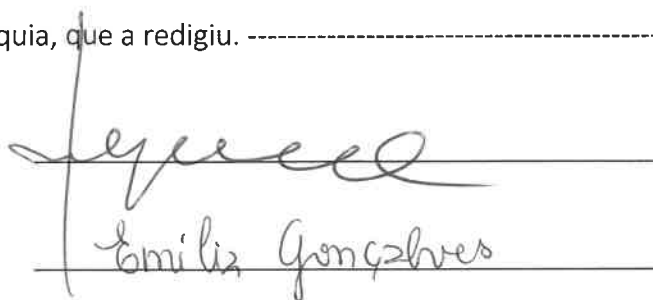 quia, que a redigiu. -----------------------------------------
Emília Gonçalves